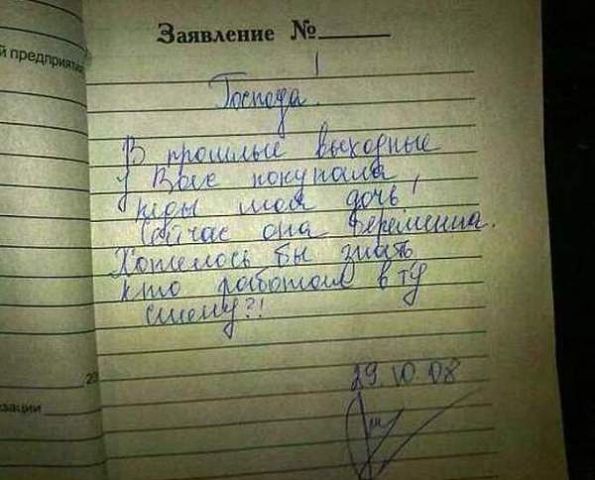 Заявление №
й предприятия
Господа!
В прошлые выходные
у Вас покупала
кеды моя дочь!
Сейчас она беременна.
Хотелось бы знать
кто работал в ту
смену?!
29.10.08
20
зации